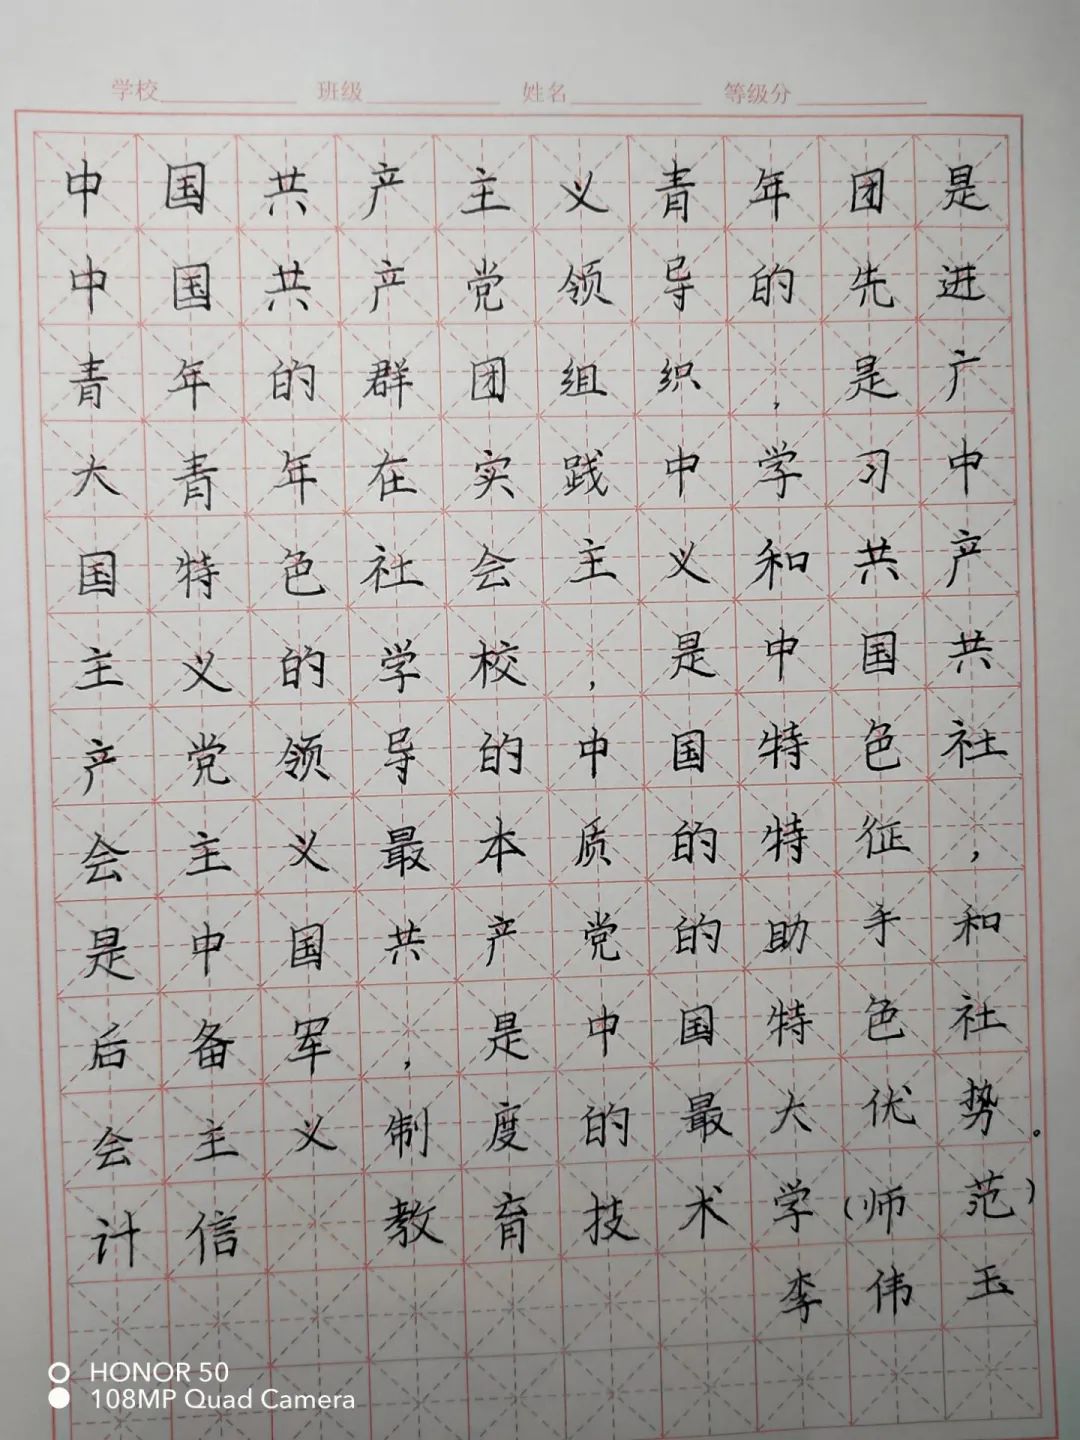 学校 班级 姓名 等级分
中国共产主义青年团是
中国共产党领导的先进
青年的群团组织，是广
大青年在实践中学习中
国特色社会主义和共产
主义的学校，是中国共
产党领导的中国特色社
会主义最本质的特征，
是中国共产党的助手和
后备军，是中国特色社
会主义制度的最大优势。
计信 教育技术学(师范)
李伟玉
HONOR 50
108MP Quad Camera